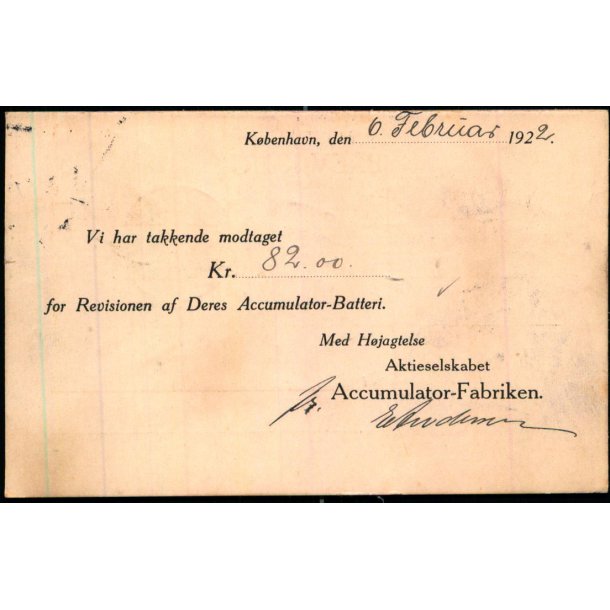 København, den 6. Februar 1922.
Vi har takkende modtaget
Kr. 82.00.
for Revisionen af Deres Accumulator-Batteri.
Med Højagtelse
Aktieselskabet
Accumulator-Fabriken.